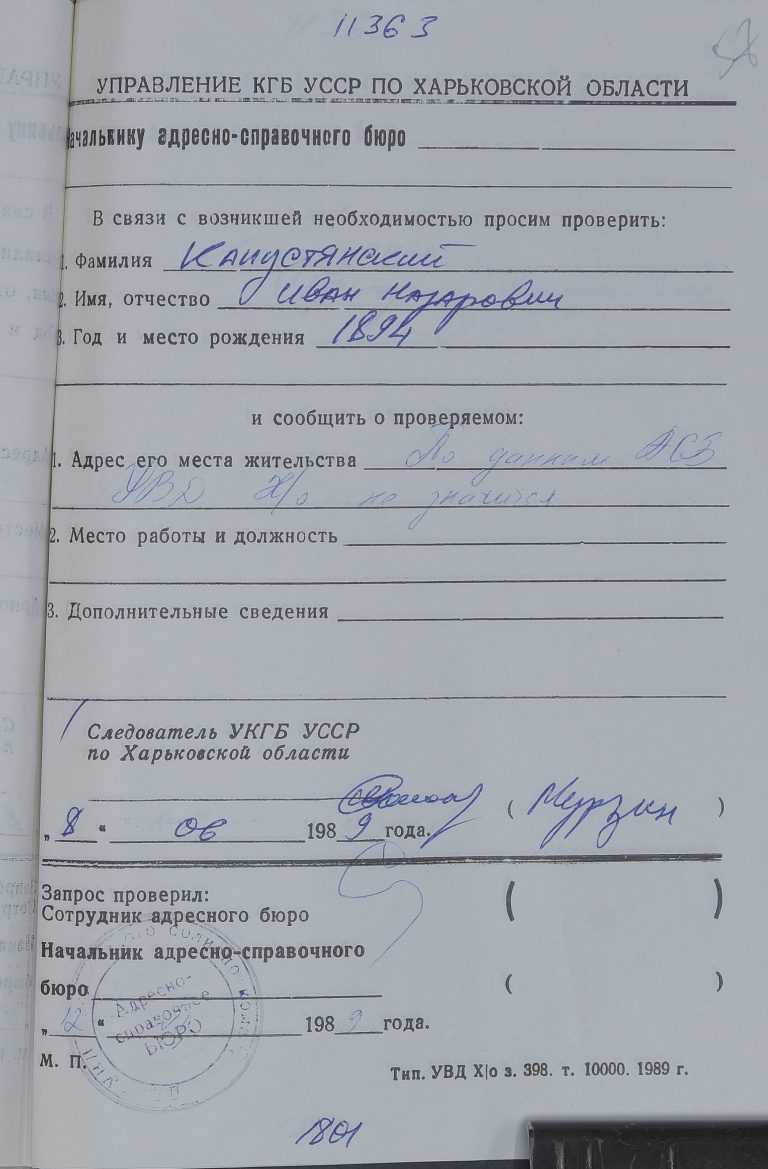 11363
УПРАВЛЕНИЕ КГБ УССР ПО ХАРЬКОВСКОЙ ОБЛАСТИ
Начальнику адресно-справочного бюро
В связи с возникшей необходимостью просим проверить:
1. Фамилия Капустянский
2. Имя, отчество Иван Назарович
3. Год и место рождения 1894
и сообщить о проверяемом:
1. Адрес его места жительства По данным АСБ
УВД Х/о не значится
2. Место работы и должность
3. Дополнительные сведения
Следователь УКГБ УССР
по Харьковской области
(Мурзин)
„8“ 06 1989 года.
Запрос проверил:
Сотрудник адресного бюро ( )
Начальник адресно-справочного
бюро ( )
„12“ 1989 года.
Адресно-
справочное
БЮРО
М. П.
Тип. УВД Х|о з. 398. т. 10000. 1989 г.
1801